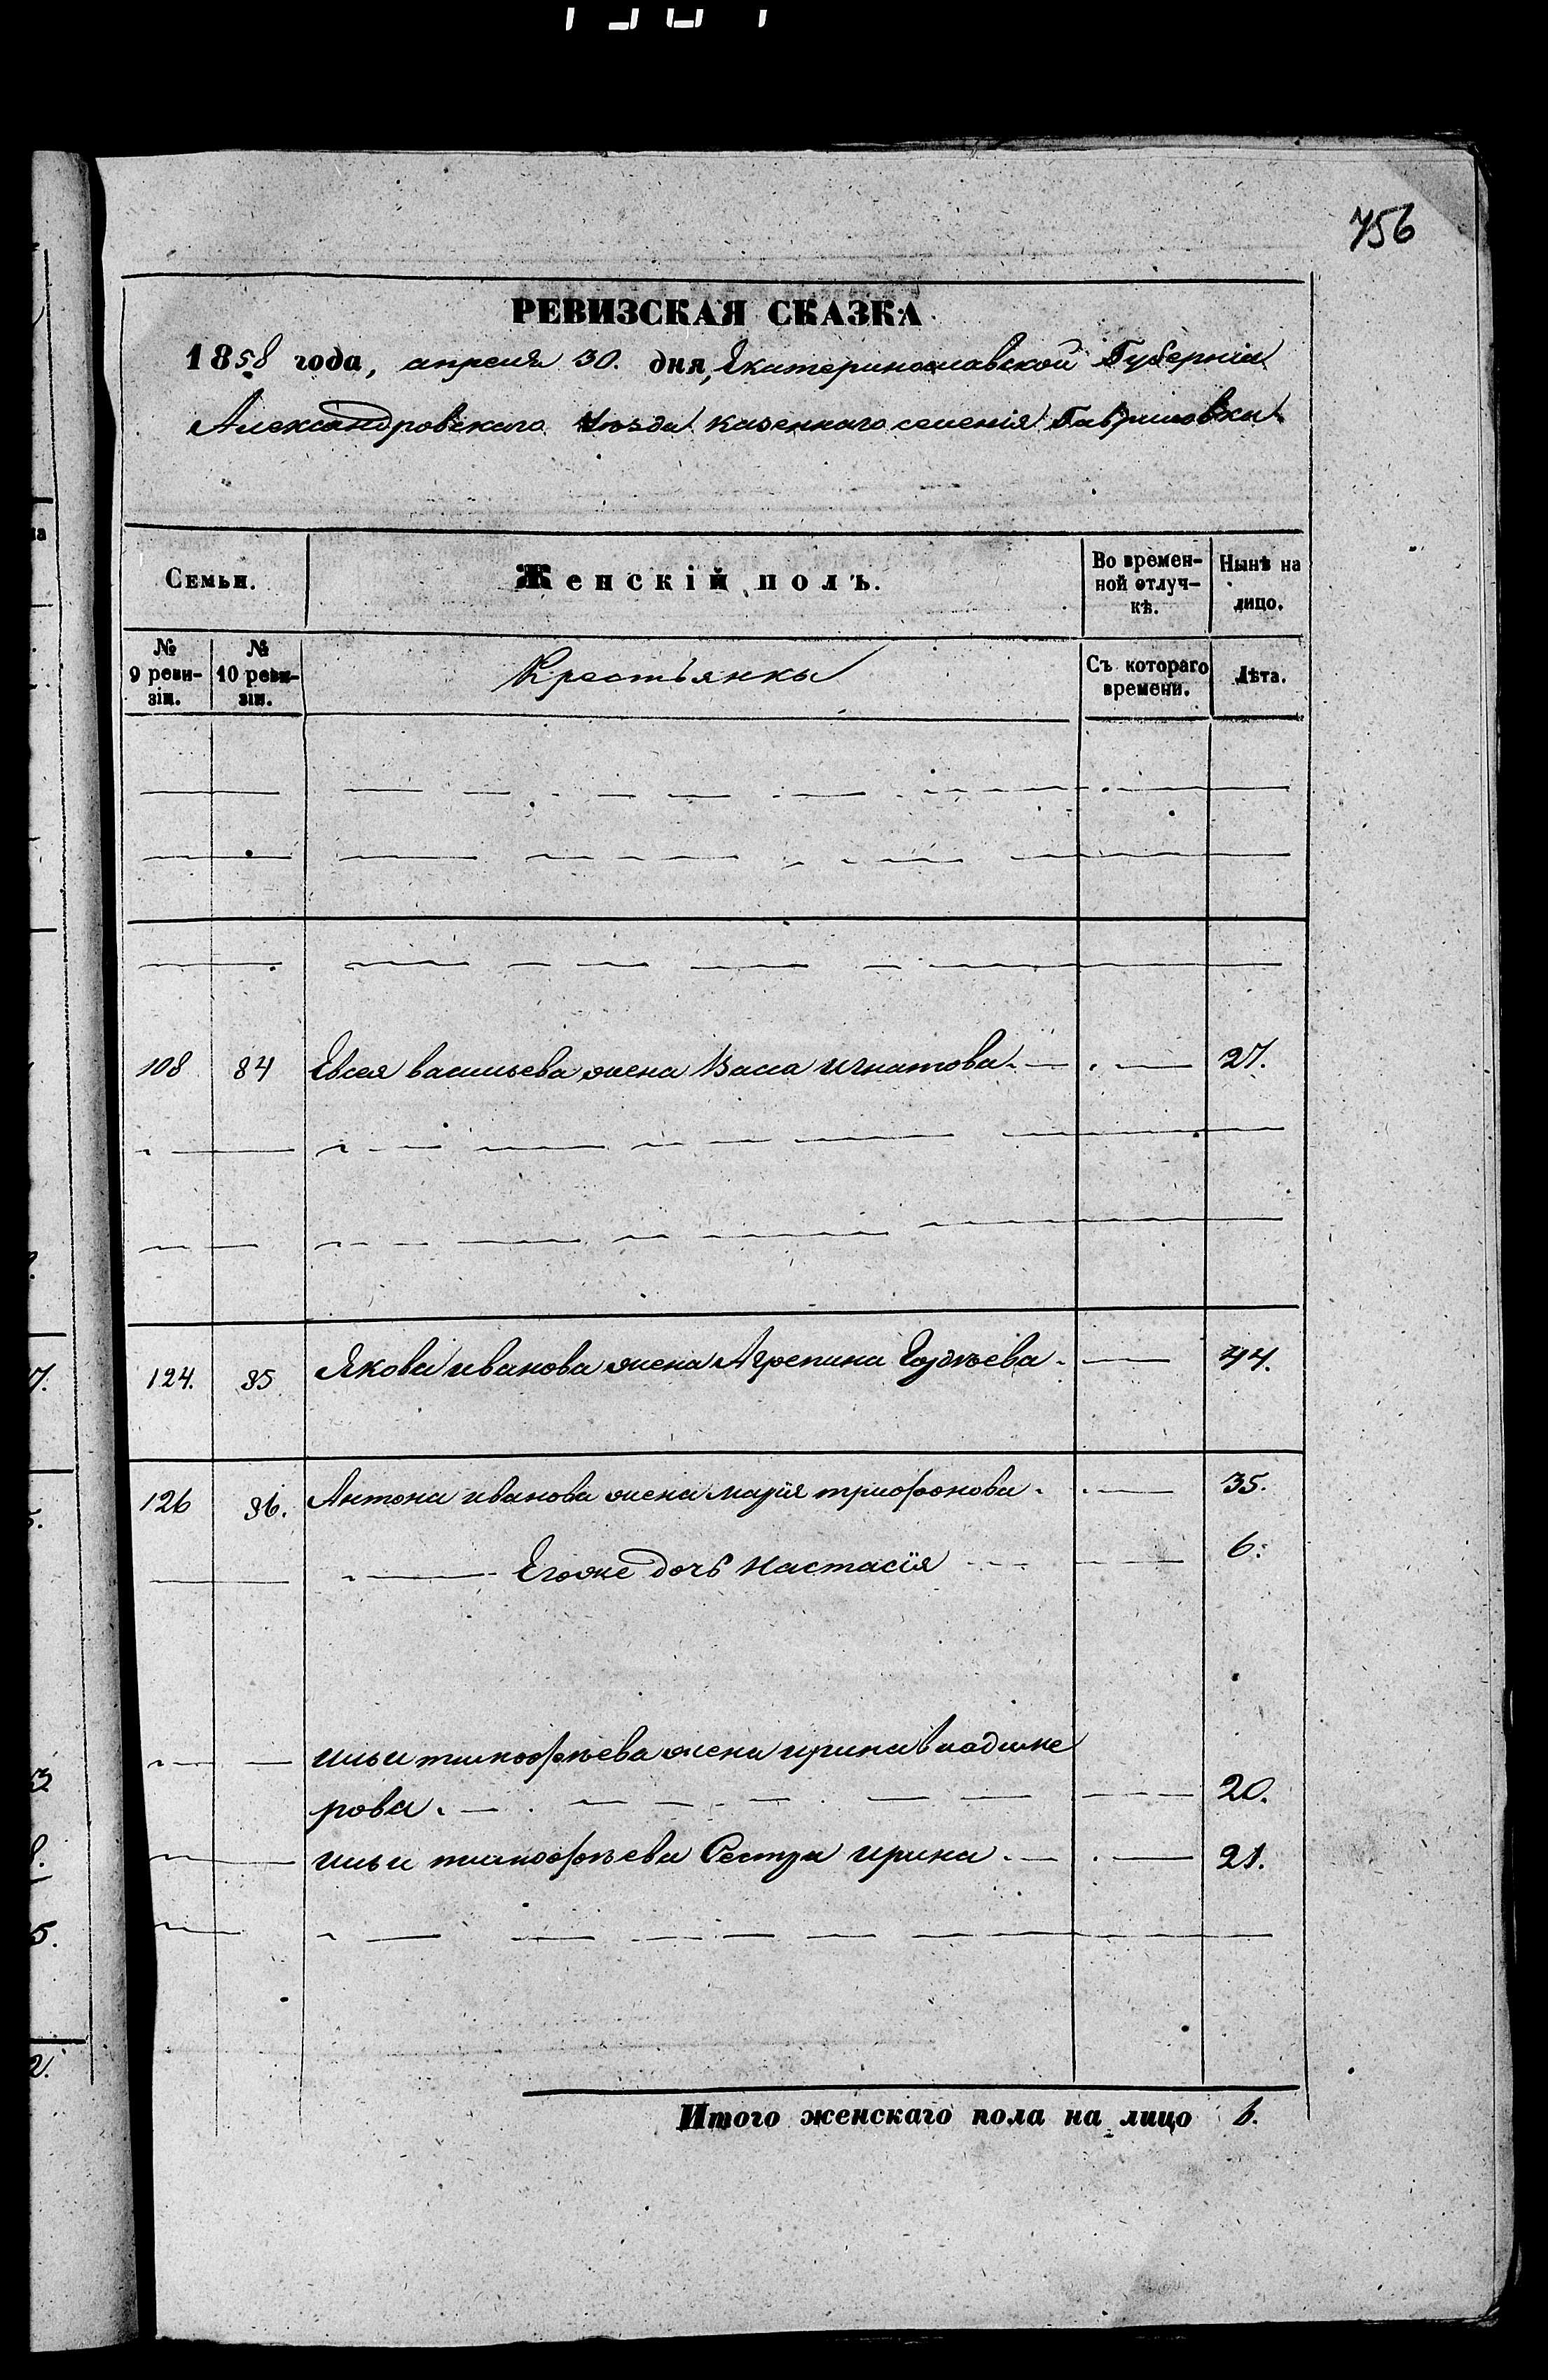 756
РЕВИЗСКАЯ СКАЗКА
1858 года, апреля 30. дня, Екатеринославской Губерніи
Александровскаго Уѣзда казеннаго селенія Гавриловки
Семьи. Женскій полъ. Во времен- Нынѣ на
ной отлуч- лицо.
кѣ.
№ № Крестьянки Съ котораго Лѣта.
9 реви- 10 реви- времени.
зіи. зіи.
108 84 Евсея васильева жена Васа игнатова 27.
124. 85 Якова иванова жена Агрепина 44.
126 86. Антона иванова жена марія трифонова 35.
Егоже дочь настасія 6.
ильи тимофѣева жена ирина владиме
рова 20.
ильи тимофѣева Сестра ирина 21.
Итого женскаго пола на лицо 6.